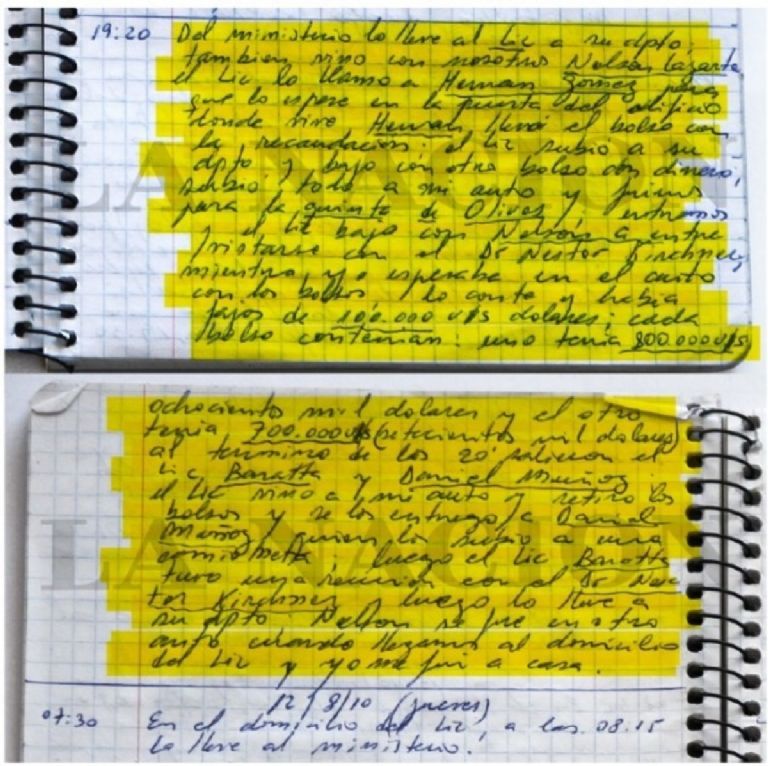 19:20 Del ministerio lo lleve al Lic a su dpto,
tambien vino con nosotros Nelson Lazarte
el Lic lo llamo a Hernan Gomez para
que lo espere en la puerta del edificio
donde vive Hernan llevó el bolso con
la recaudacion: el Lic subio a su
dpto y bajo con otro bolso con dinero,
subio todo a mi auto y fuimos
para la quinta de Olivos, entramos
y el Lic bajo con Nelson a entre
vistarse con el Dr Nestor Kirchner,
mientras yo esperaba en el auto
con los bolsos lo conte y habia
fajos de 100.000 U$S dolares; cada
bolso contenian: uno tenia 800.000 U$S
ochocientos mil dolares y el otro
tenia 700.000 U$S (setecientos mil dolares)
al termino de los 20' salieron el
Lic Baratta y Daniel Muñoz.
el Lic vino a mi auto y retiro los
bolsos y se los entrego a Daniel
Muñoz quien los subio a una
camioneta, luego el Lic Baratta
tuvo una reunion con el Dr Nes
tor Kirchner, luego lo lleve a
su dpto Nelson se fue en otro
auto cuando llegamos al domicilio
del Lic y yo me fui a casa.
12/8/10 (jueves)
07:30 En el domicilio del Lic, a las 08.15
lo lleve al ministerio.
LA NACION
LA NACION